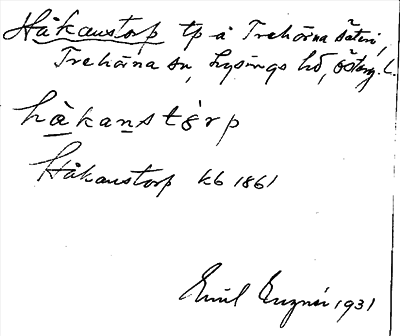 Håkanstorp tp å Trehörna säteri,
Trehörna sn, Lysings hd, Österg. L.
håkanstòrp
Håkanstorp kb 1861
Emil 1931